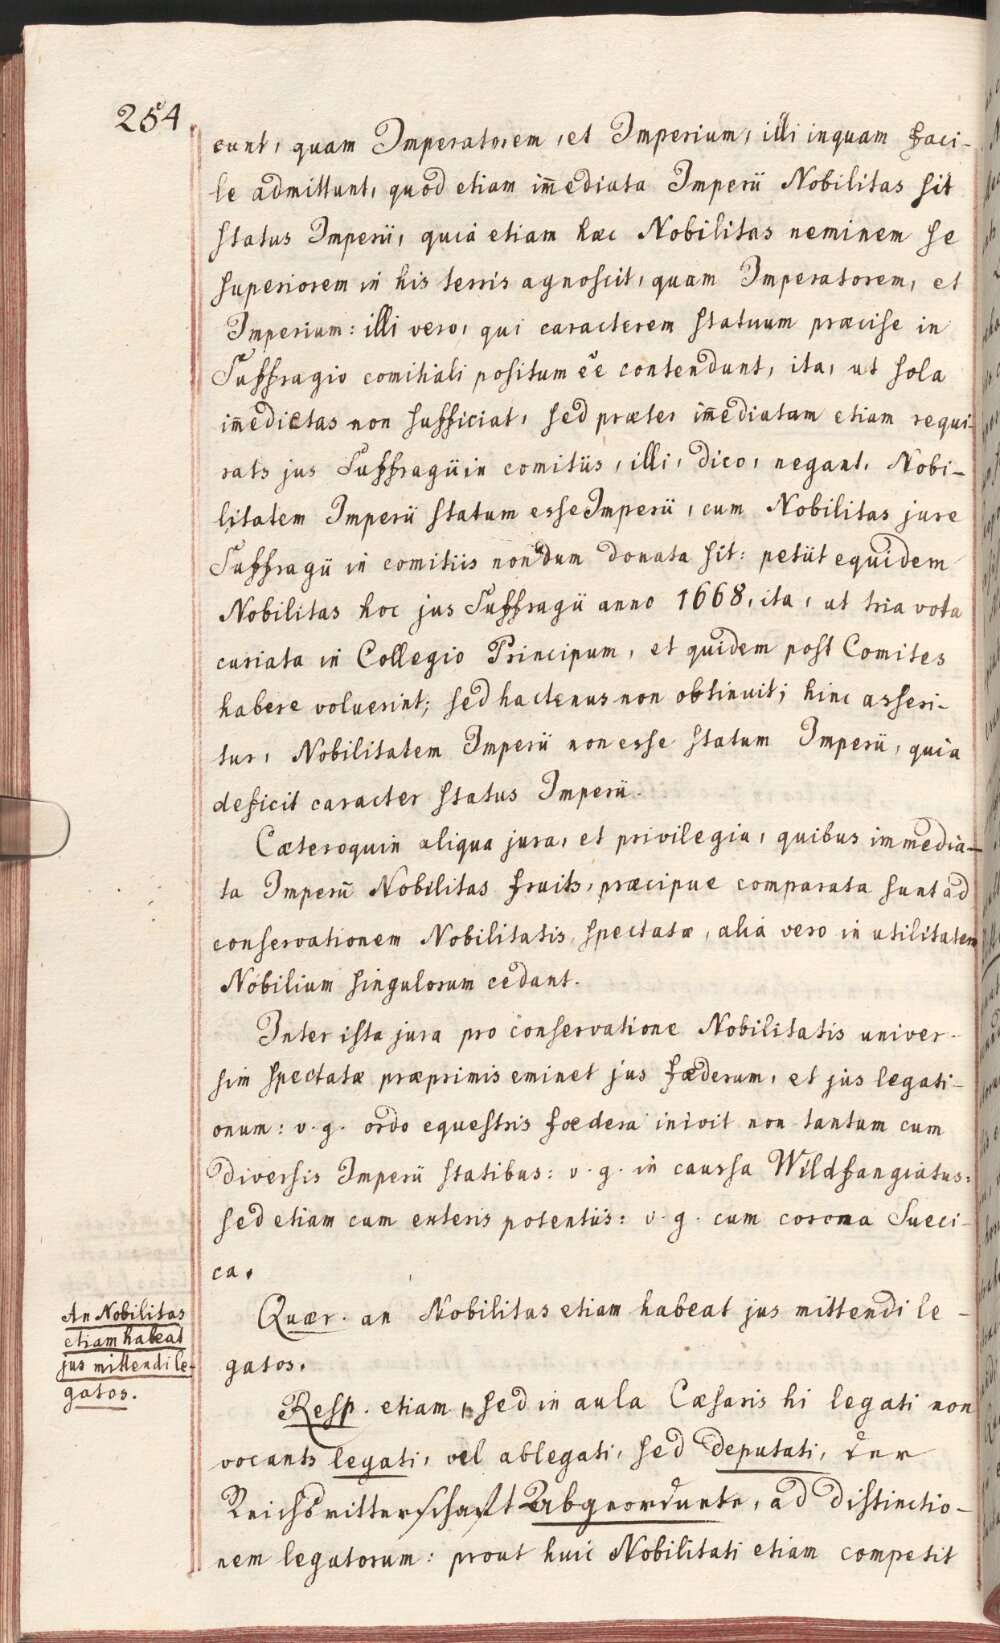 254
cunt, quam Imperatorem, et Imperium, illi inquam faci-
le admittunt, quod etiam im̄ediata Imperii Nobilitas sit
status Imperii, quia etiam hæc Nobilitas neminem se
superiorem in his terris agnoscit, quam Imperatorem, et
Imperium: illi vero, qui caracterem statuum præcise in
Suffragio comitiali positum ēe contendunt, ita, ut sola
im̄edietas non sufficiat, sed præter im̄ediatam etiam requi-
rats jus Suffragii in comitiis, illi, dico, negant, Nobi-
litatem Imperii statum esse Imperii, cum Nobilitas jure
Suffragii in comitiis nondum donata sit: petiit equidem
Nobilitas hoc jus Suffragii anno 1668, ita, ut tria vota
curiata in Collegio Principum, et quidem post Comites
habere voluerint; sed hactenus non obtinuit; hinc asseri-
tur, Nobilitatem Imperii non esse statum Imperii, quia
deficit caracter status Imperii.
Cæteroquin aliqua jura, et privilegia, quibus immedia-
ta Imperii Nobilitas fruits, præcipue comparata sunt ad
conservationem Nobilitatis spectatæ, alia vero in utilitatem
Nobilium singulorum cedant.
Inter ista jura pro conservatione Nobilitatis univer-
sim spectatæ præprimis eminet jus fœderum, et jus legati-
onum: v. g. ordo equestris foedera inivit non tantum cum
diversis Imperii statibus: v. g. in caussa Wildfangiatus:
sed etiam cum exteris potentiis: v. g. cum corona Sueci-
ca.
An Nobilitas
etiam habeat
jus mittendi le-
gatos.
Quær. an Nobilitas etiam habeat jus mittendi le-
gatos.
Resp. etiam, sed in aula Cæsaris hi legati non
vocants legati, vel ablegati, sed deputati, der
Reichsritterschaft Abgeordnete, ad distinctio-
nem legatorum: prout huic Nobilitati etiam competit